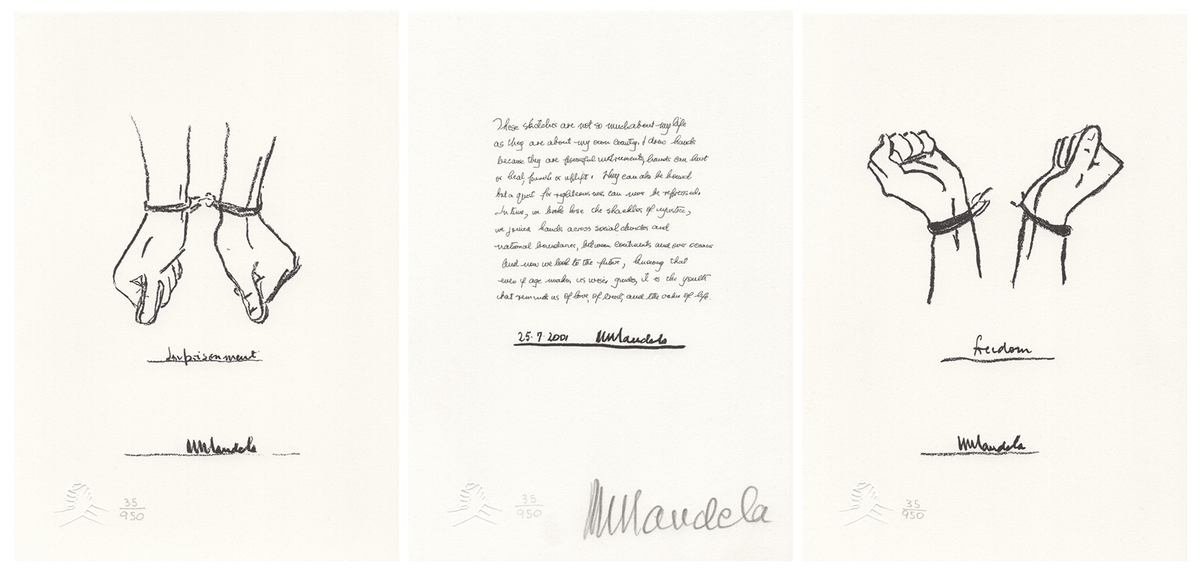 Imprisonment
MMandela
35
950
These sketches are not so much about my life
as they are about my own country. I draw hands
because they are powerful instruments, hands can hurt
or heal, punish or uplift. They can also be bound
but a quest for righteousness can never be repressed.
In time, we broke lose the shackles of injustice,
we joined hands across social divides and
national boundaries, between continents and over oceans
and now we look to the future, knowing that
even if age makes us wiser guides, it is the youth
that remind us of love, of trust, and the value of life.
25.7.2001 MMandela
35
950
MMandela
freedom
MMandela
35
950